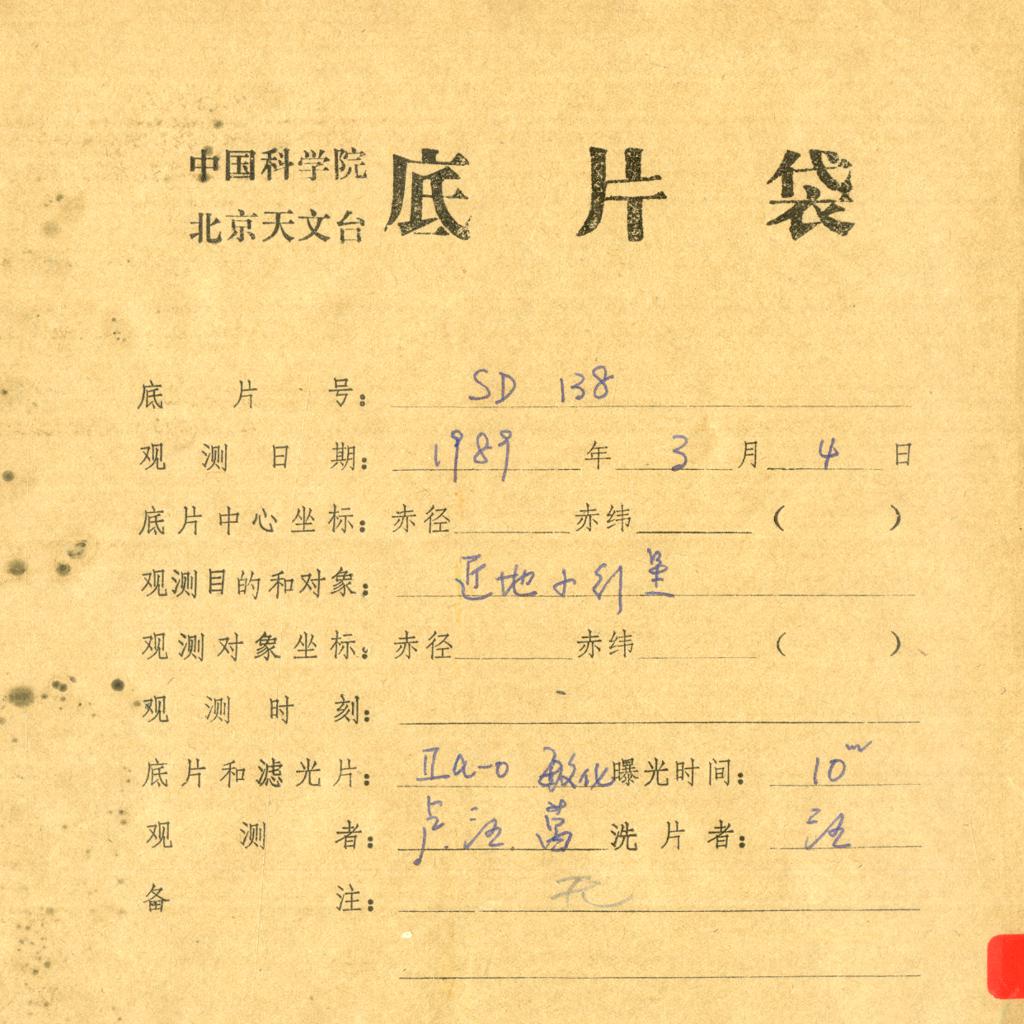 中国科学院
北京天文台
底片袋
底片号：SD 138
观测日期：1989年3月4日
底片中心坐标：赤径 赤纬 （ ）
观测目的和对象：近地小行星
观测对象坐标：赤径 赤纬 （ ）
观测时刻：
底片和滤光片：IIa-O 敏化 曝光时间：10ᵐ
观测者：卢.汪. 萬 洗片者：汪
备注：